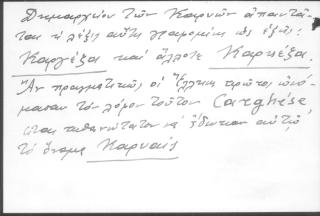 Δημαρχείον τῶν Καρυῶν ἀπαντᾶ-
ται ἡ λέξις αὕτη γραμμένη ὡς ἑξῆς:
Καργέζα καί ἄλλοτε Καρκέζα.
Ἂν πραγματικῶς οἱ Ἕλληνες πρῶτοι ὠνό-
μασαν τόν λόφον τοῦτον Carghèse
εἶναι πιθανώτατον νά ἔδωκαν αὐτῷ
τό ὄνομα Καρυαίς